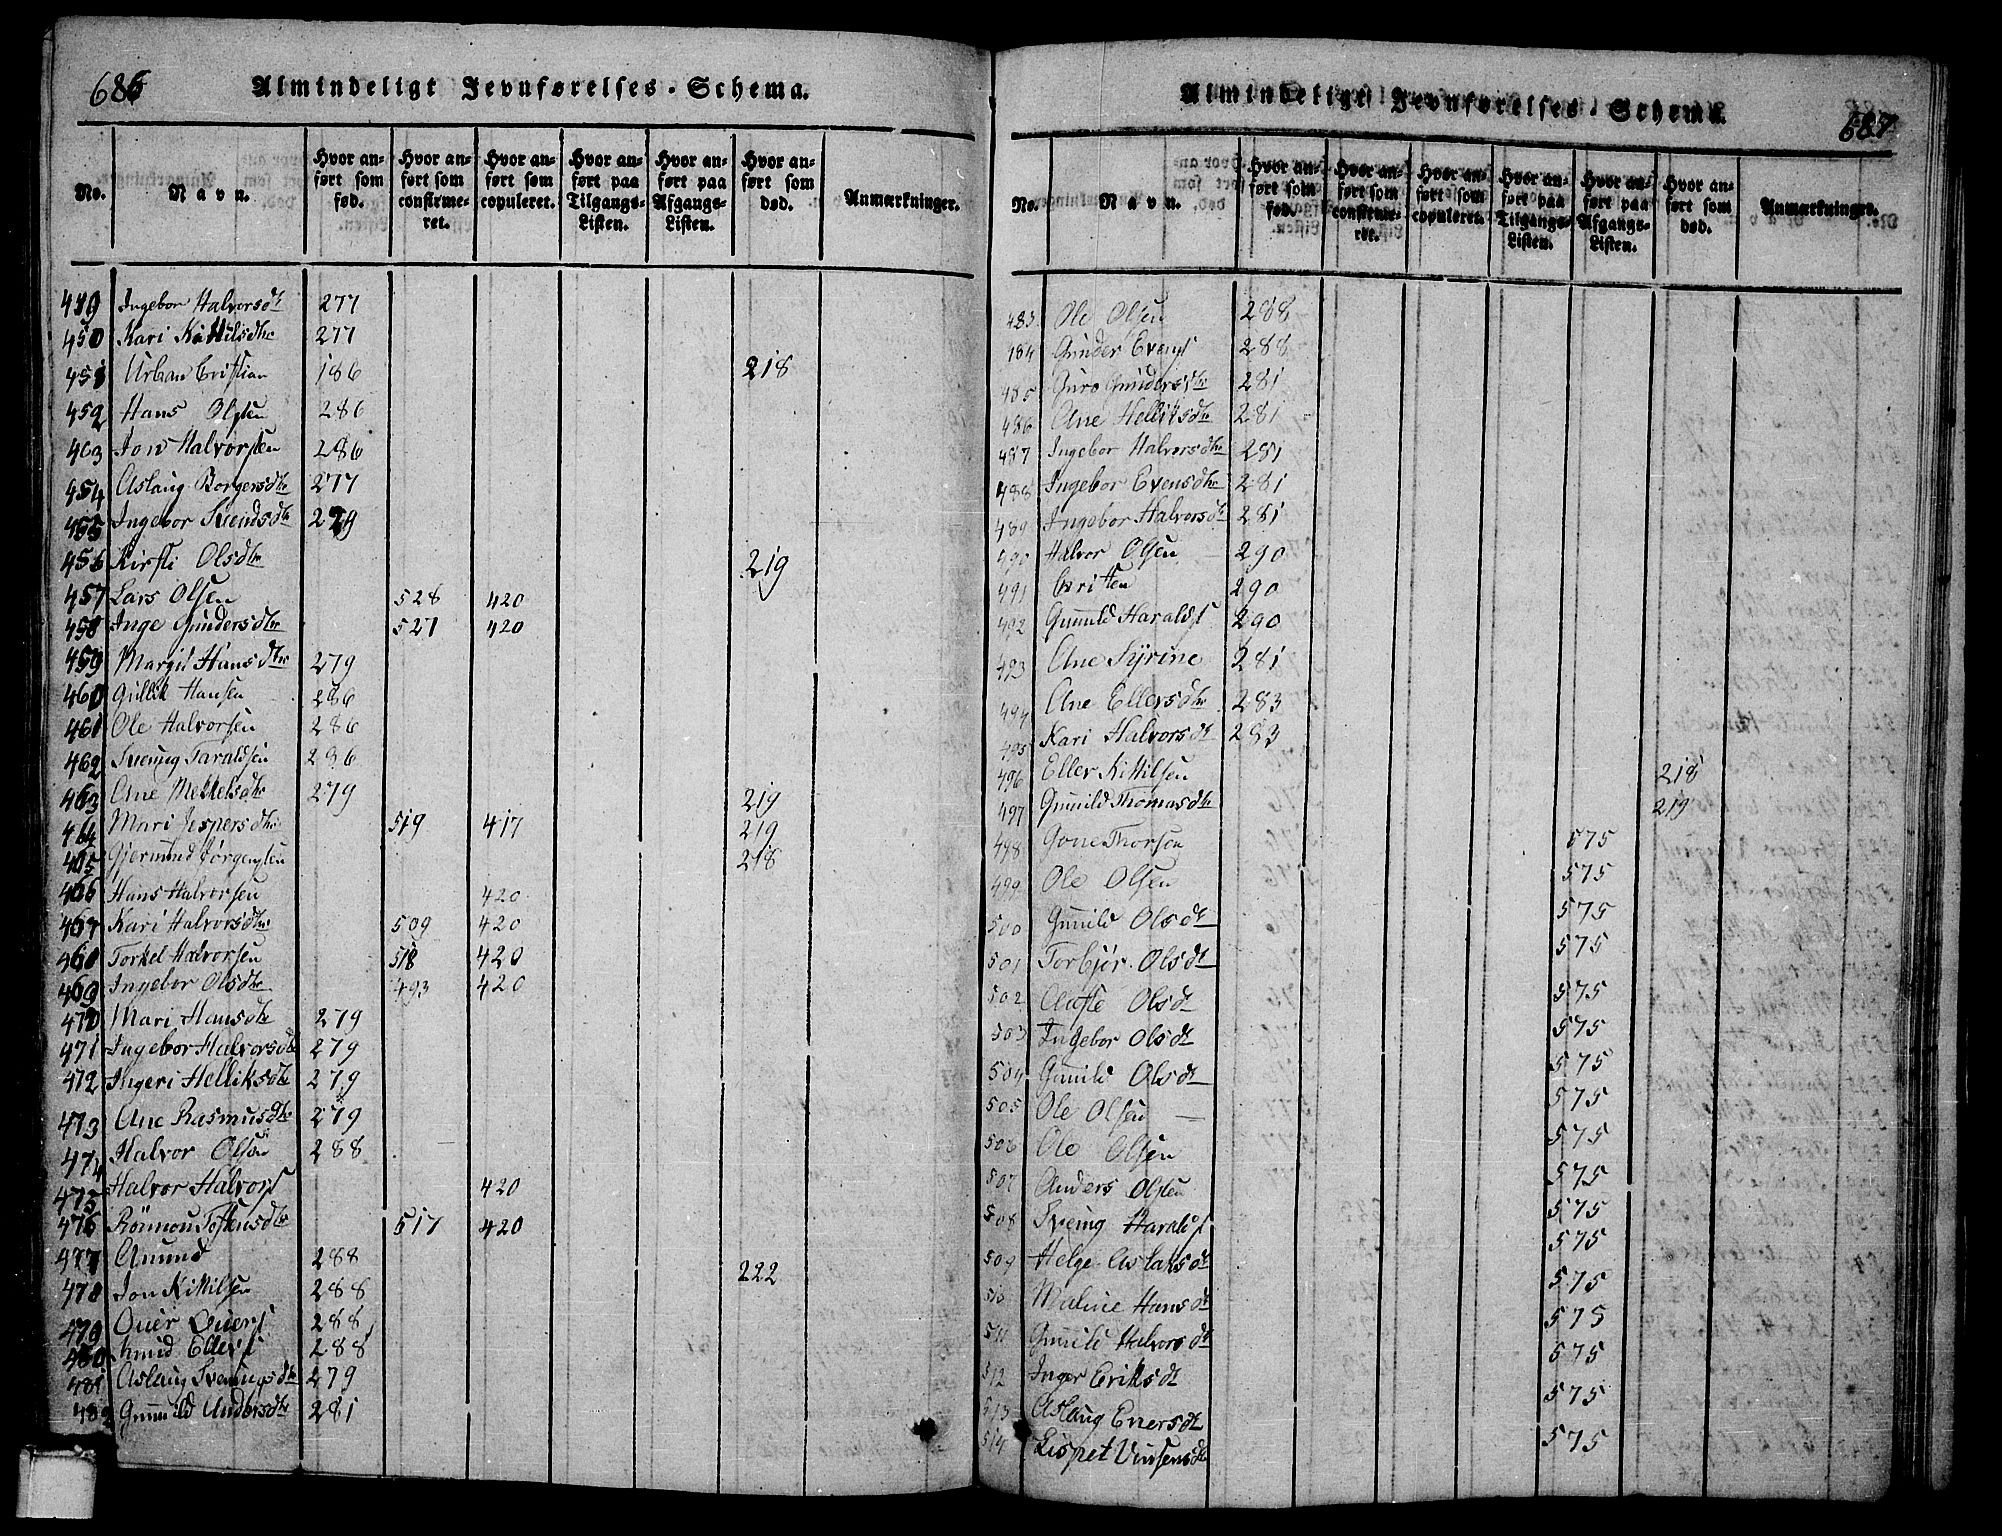 686 Almindeligt Jevnførelses-Schema.
No. Navn. Hvor anført som fød. Hvor anført som confirmeret. Hvor anført som copuleret. Hvor anført paa Tilgangs-Listen. Hvor anført paa Afgangs-Listen. Hvor anført som død. Anmærkninger.
449 Ingebor Halvorsdtr 277
450 Kari Kittilsdtr 277
451 Urban Cristian 186 218
452 Hans Olsen 286
453 Jon Halvorsen 286
454 Aslaug Borgersdtr 277
455 Ingebor Svendsdtr 279
456 Kirsti Olsdtr 219
457 Lars Olsen 528 420
458 Inge Gundersdtr 527 420
459 Margit Hansdtr 279
460 Gullik Hansen 286
461 Ole Halvorsen 286
462 Svenug Taraldsen 286
463 Ane Mekkelsdtr 279 219
464 Mari Jespersdtr 519 417 219
465 Gjermund Jørgensen 218
466 Hans Halvorsen 420
467 Kari Halvorsdtr 509 420
468 Torkel Halvorsen 518 420
469 Ingebor Olsdtr 493 420
470 Mari Hansdtr 279
471 Ingebor Halvorsdtr 279
472 Ingeri Helliksdtr 279
473 Ane Rasmusdtr 279
474 Halvor Olson 288
475 Halvor Halvors 420
476 Rönnou Tostensdtr 517 420
477 Amund 288
478 Jon Kittilsen 288 222
479 Over Overs 288
480 Knud Ellevs 288
481 Aslaug Svenugsdtr 279
482 Gunnild Andersdtr 281
Almindeligt Jevnførelses-Schema. 687
No. Navn. Hvor anført som fød. Hvor anført som confirmeret. Hvor anført som copuleret. Hvor anført paa Tilgangs-Listen. Hvor anført paa Afgangs-Listen. Hvor anført som død. Anmærkninger.
483 Ole Olsen 288
484 Gunder Evens 288
485 Guro Gundersdtr 281
486 Ane Helliksdtr 281
487 Ingebor Halvorsdtr 281
488 Ingebor Evensdtr 281
489 Ingebor Halvorsdtr 281
490 Halvor Olsen 290
491 Cristen 290
492 Gunnuld Haralds 290
493 Ane Syrine 281
494 Ane Ellersdtr 283
495 Kari Halvorsdt 283
496 Eller Kittilsen 218
497 Gunnild Thomasdtr 219
498 Gone Thorsen 575
499 Ole Olsen 575
500 Gunild Olsdt 575
501 Torbjør Olsdt 575
502 Aaste Olsdt 575
503 Ingebor Olsdt 575
504 Gunild Olsdt 575
505 Ole Olsen 575
506 Ole Olsen 575
507 Anders Olsen 575
508 Svenug Haralds 575
509 Helge Aslaksdt 575
510 Maline Hansdt 575
511 Gunild Halvorsdt 575
512 Inger Eriksdt 575
513 Aslaug Enersdt 575
514 Lispet Vinsensdt 575